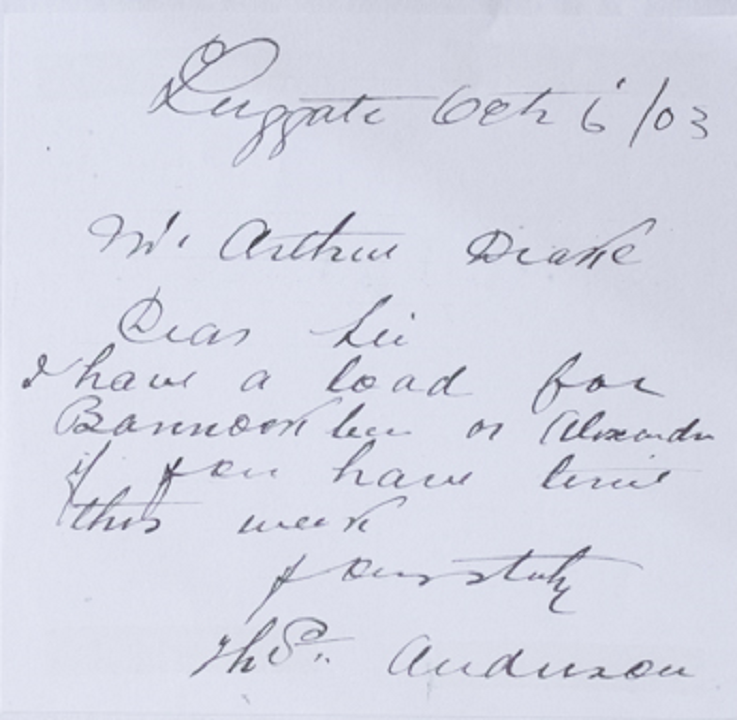 Luggate Oct 6/03
Mr. Arthur Drake
Dear Sir
I have a load for
Bannockburn or Alexandra
if you have time
this week
Yours truly
Thos. Anderson